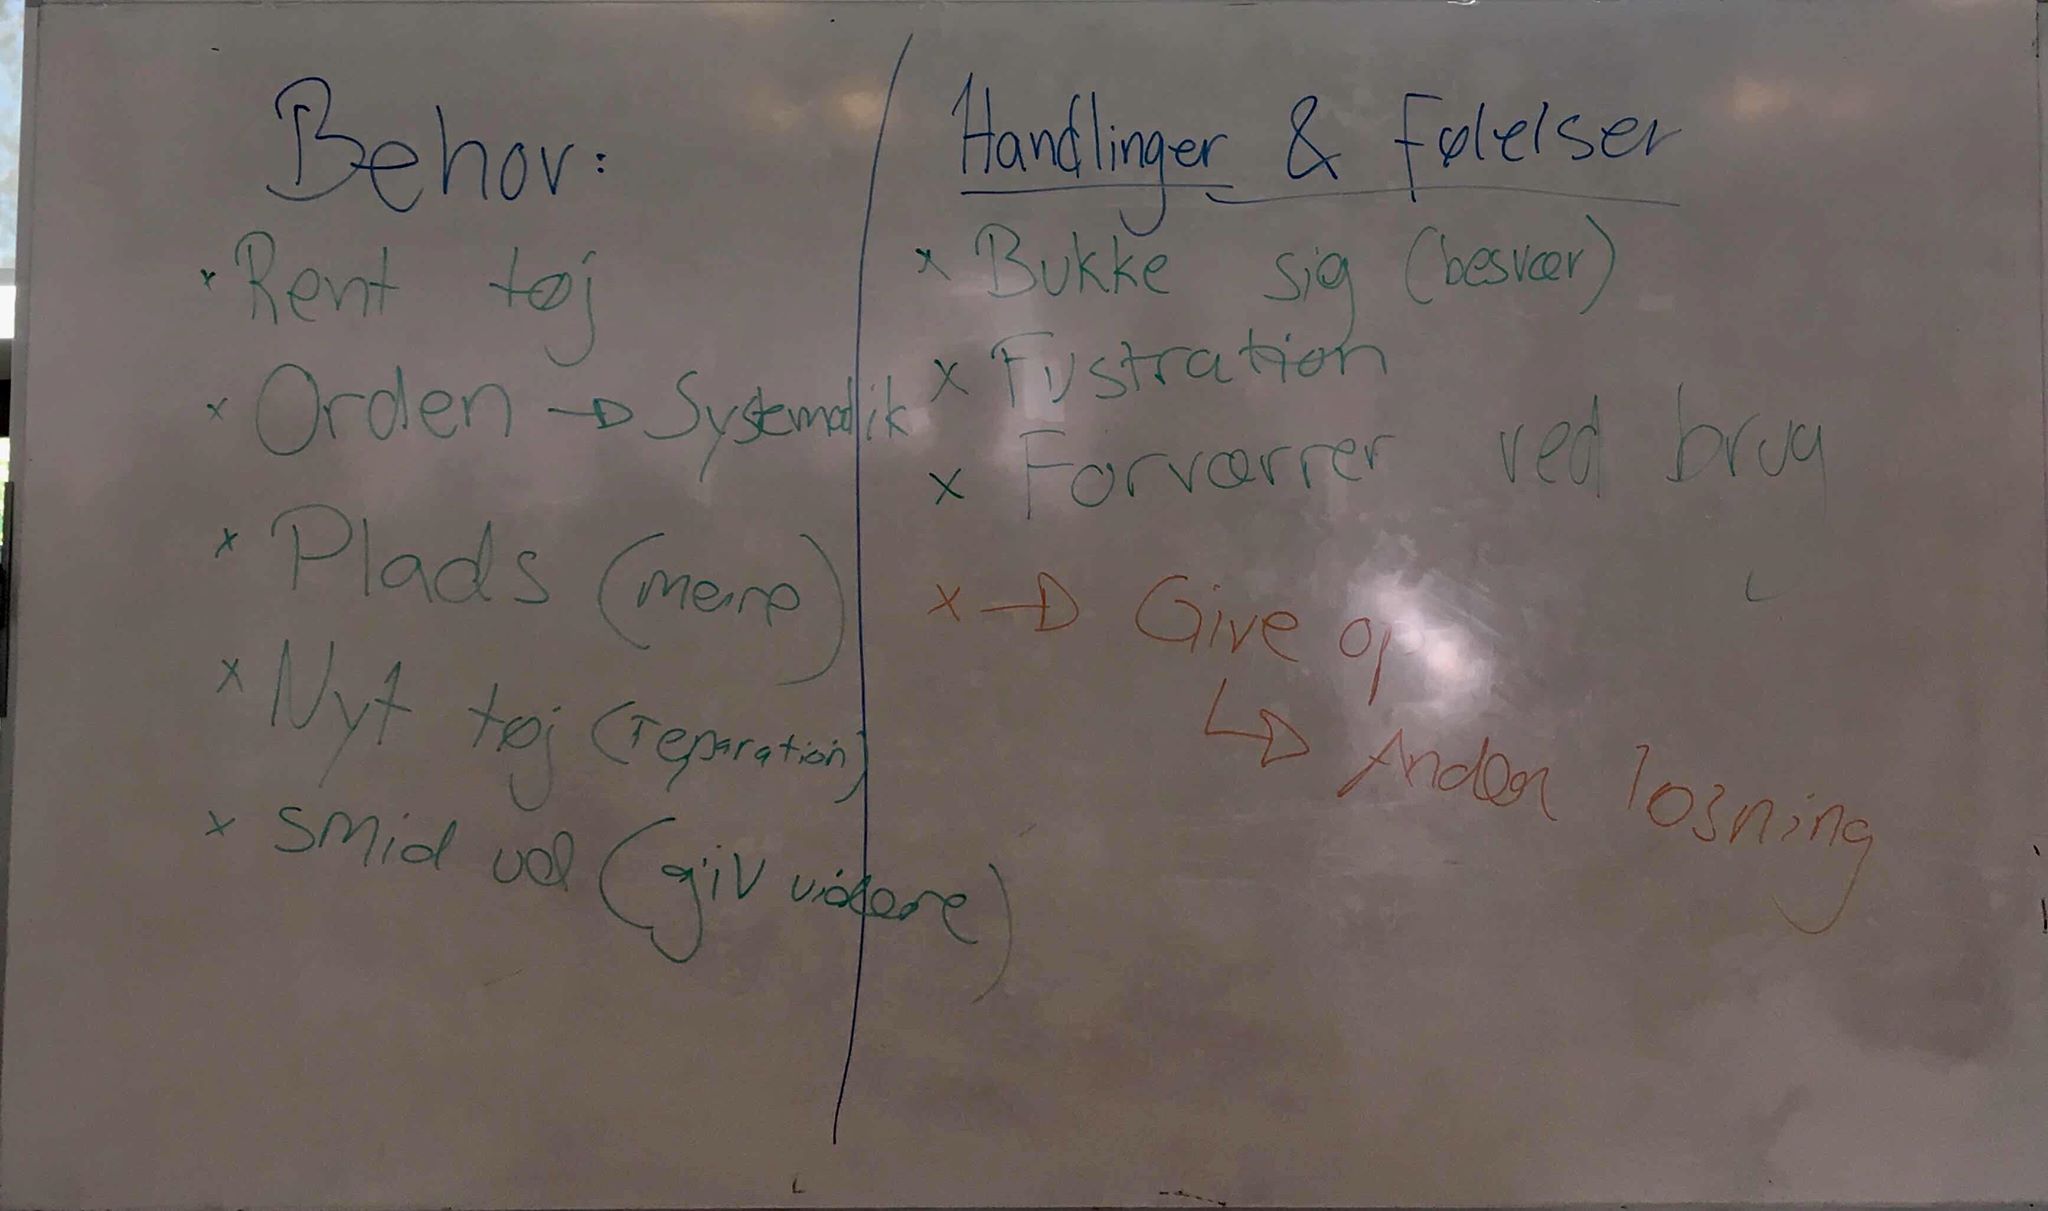 Behov:
x Rent tøj
x Orden → Systematik
x Plads (mere)
x Nyt tøj (reparation)
x Smid ud (giv videre)
Handlinger & Følelser
x Bukke sig (besvær)
x Frustration
x Forværrer ved brug
x → Give op
↳ Anden løsning